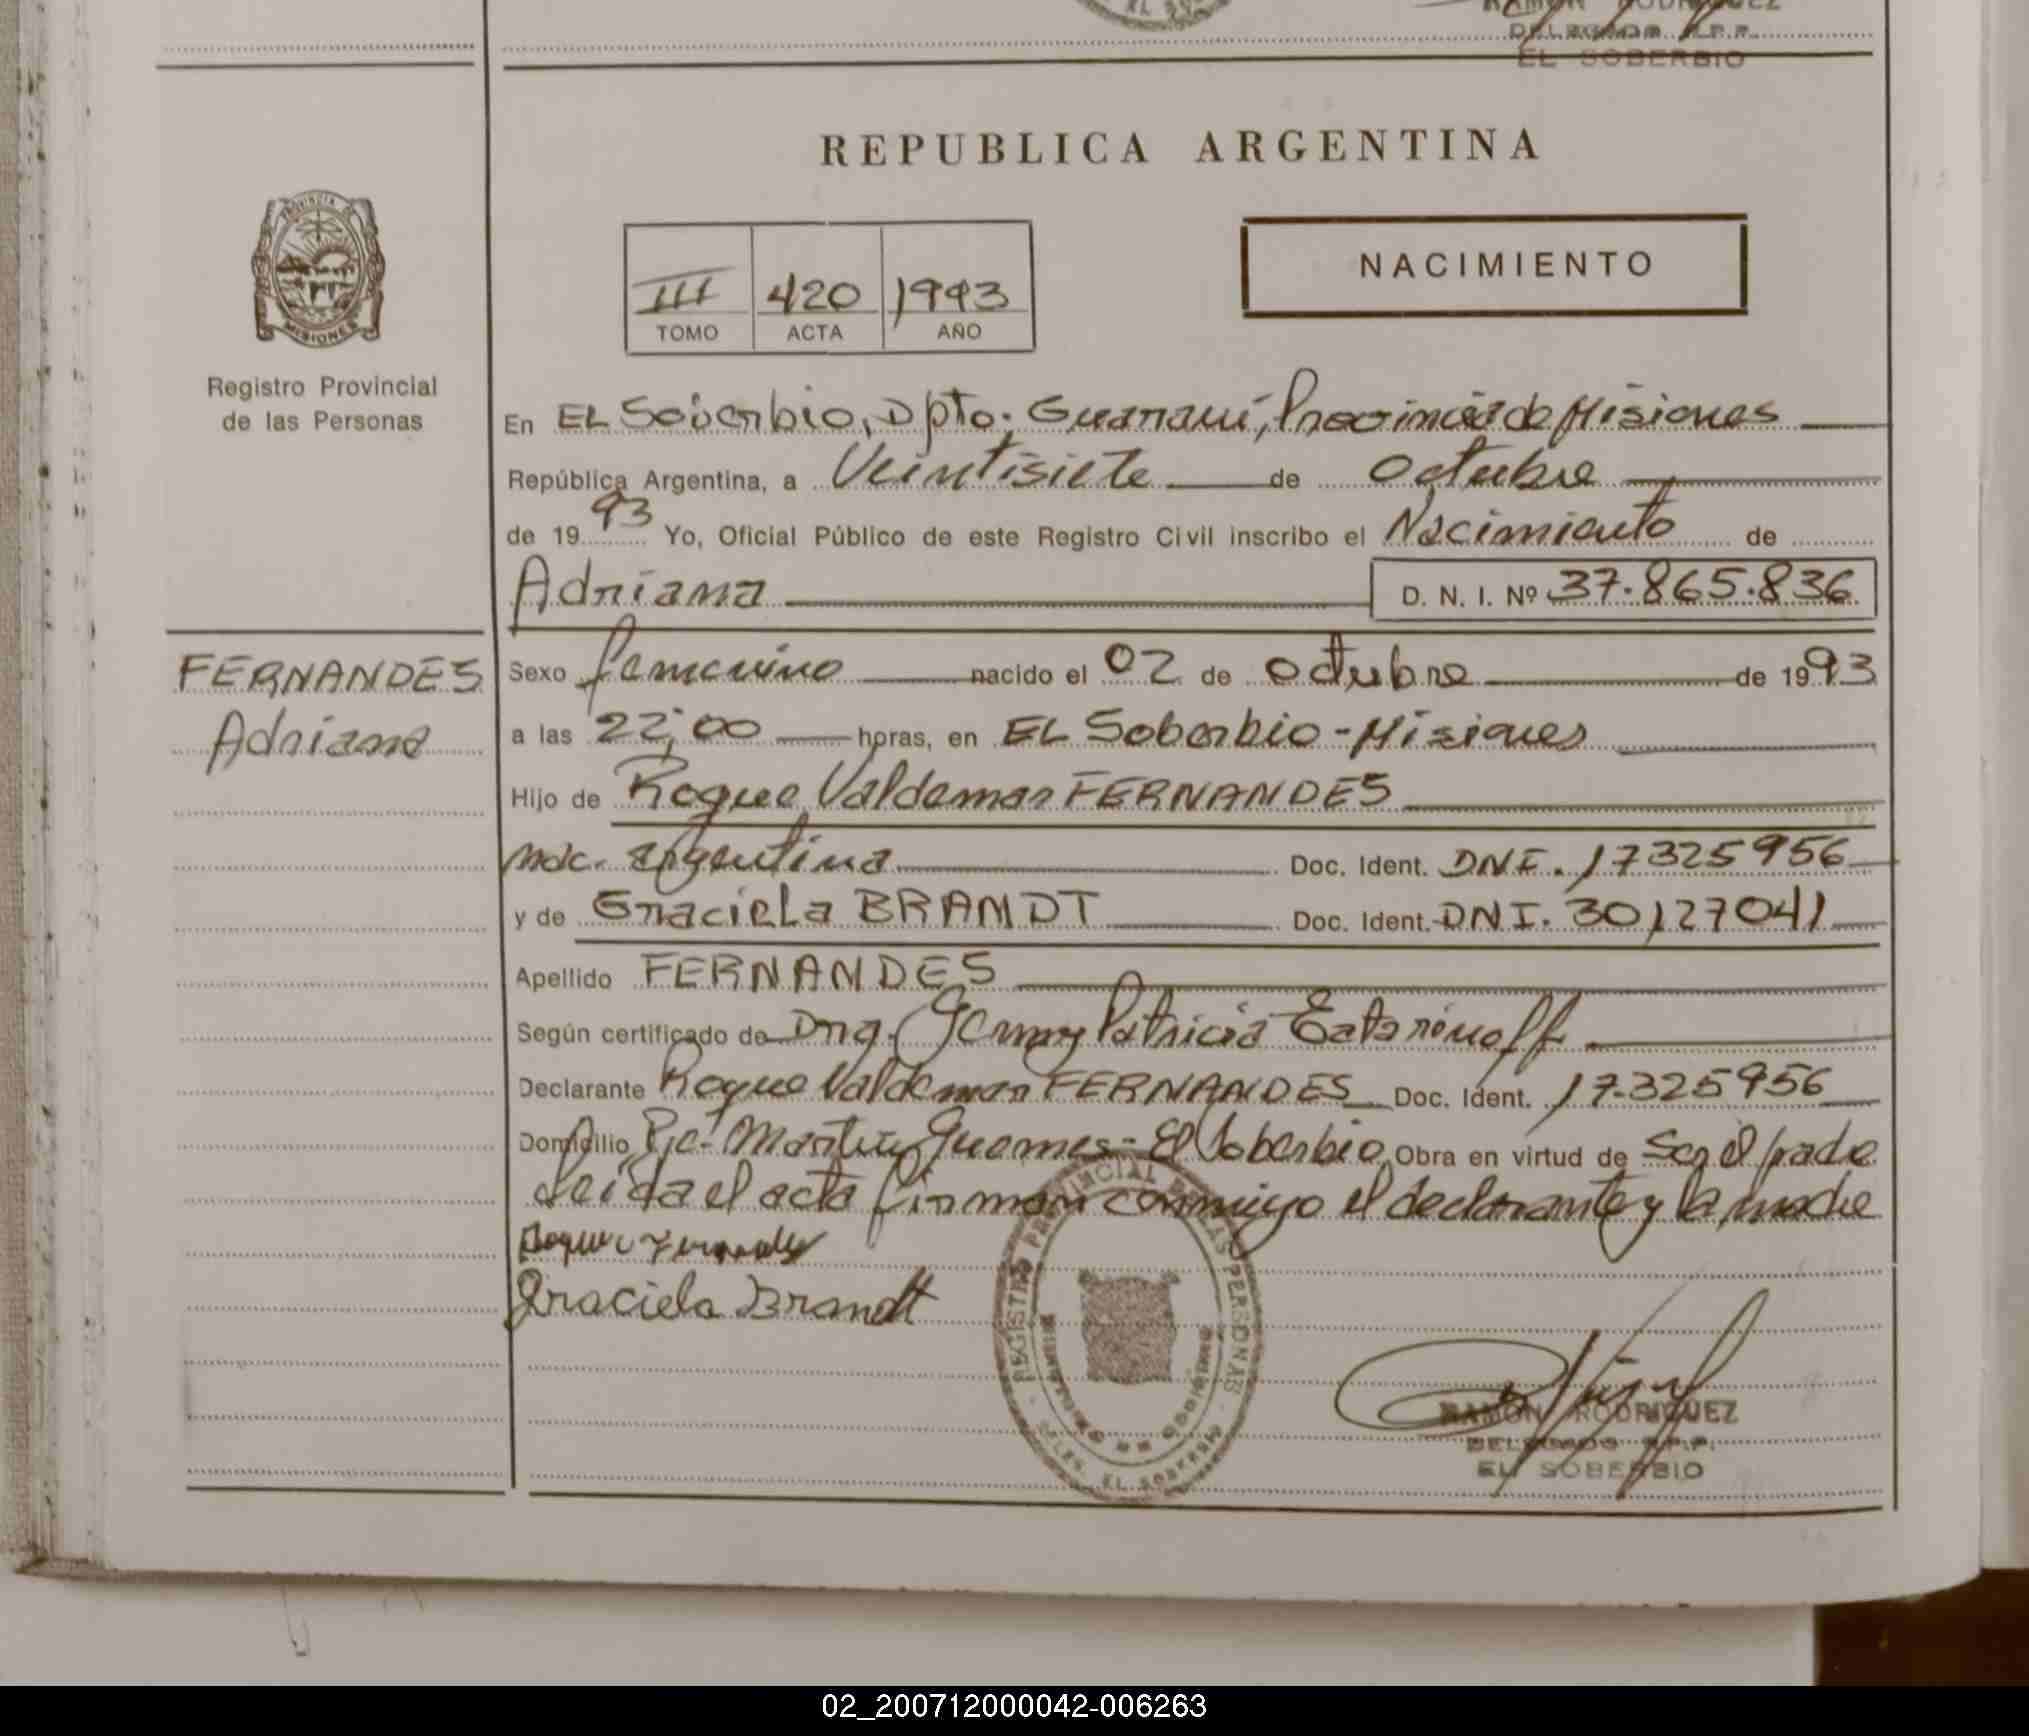 RAMON RODRIGUEZ
DELEGADO R.P.P.
EL SOBERBIO
REPUBLICA ARGENTINA
PROVINCIA DE
MISIONES
Registro Provincial
de las Personas
III 420 1993
TOMO ACTA AÑO
NACIMIENTO
En EL Soberbio, Dpto. Guaraní, Provincia de Misiones
República Argentina, a Veintisiete de Octubre
de 1993 Yo, Oficial Público de este Registro Civil inscribo el Nacimiento de
Adriana D. N. I. Nº 37.865.836
FERNANDES
Adriana
Sexo femenino nacido el 02 de Octubre de 1993
a las 22,00 horas, en EL Soberbio - Misiones
Hijo de Roque Valdemar FERNANDES
nac. argentina Doc. Ident. DNI. 17325956
y de Graciela BRANDT Doc. Ident. DNI. 30127041
Apellido FERNANDES
Según certificado de Dra. Patricia
Declarante Roque Valdemar FERNANDES Doc. Ident. 17.325956
Domicilio Martin Guemes - El Soberbio Obra en virtud de Ser el padre
Leida el acta firman conmigo el declarante y la madre
Roque Fernandes
Graciela Brandt
REGISTRO PROVINCIAL DE LAS PERSONAS
DELEG. EL SOBERBIO
RAMON RODRIGUEZ
DELEGADO R.P.P.
EL SOBERBIO
02_200712000042-006263